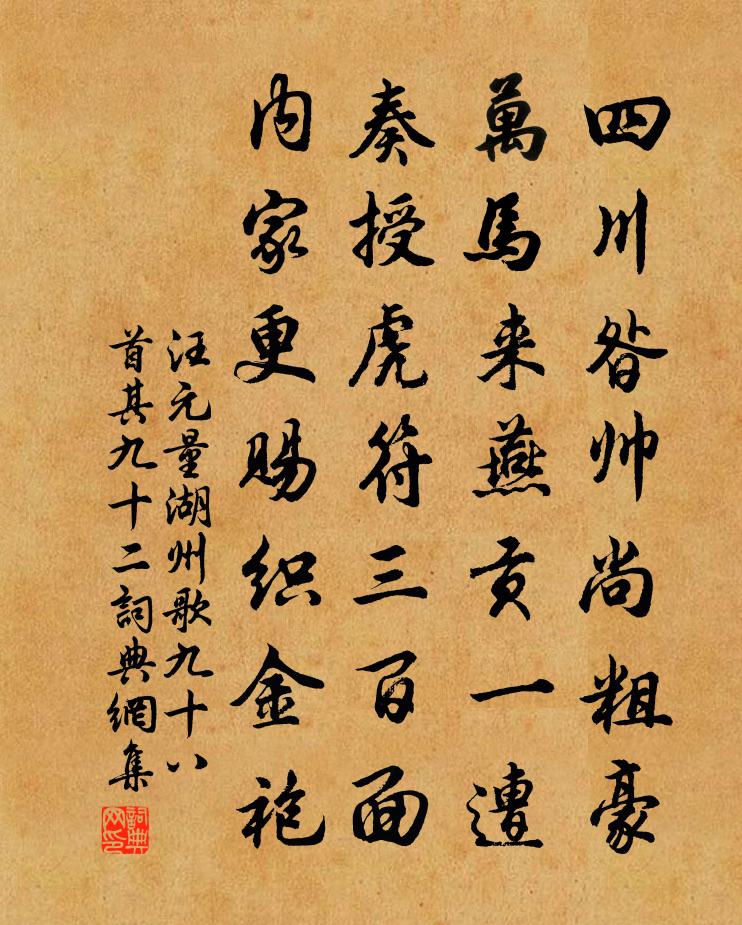 四川昝帅尚粗豪
萬馬来燕贡一遭
奏授虎符三百面
内家更赐织金袍
汪元量湖州歌九十八
首其九十二詞典網集
詞典网印